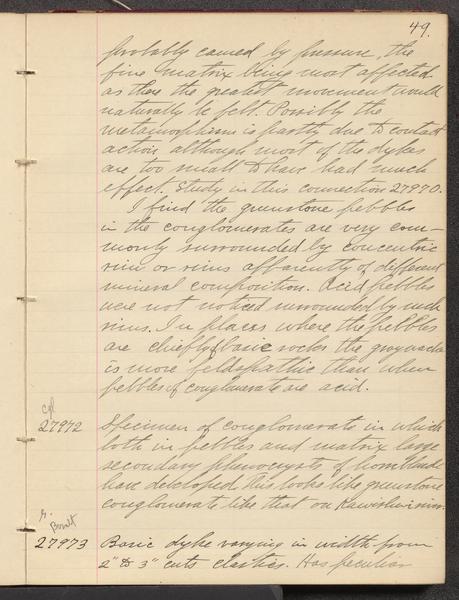 49.
probably caused by pressure, the
fine matrix being most affected
as there the greatest movement would
naturally be felt. Possibly the
metamorphism is partly due to contact
action although most of the dykes
are too small to have had much
effect. Study in this connection 27970.
I find the greenstone pebbles
in the conglomerates are very com-
monly surrounded by concentric
rim or rims apparently of different
mineral composition. Acid pebbles
were not noticed surrounded by such
rims. In places where the pebbles
are chiefly basic rocks the graywacke
is more feldspathic than when
pebbles of conglomerate are acid.
cgl
27972 Specimen of conglomerate in which
both in pebbles and matrix large
secondary phenocrysts of hornblende
have developed. This looks like greenstone
conglomerate like that on
27973 Basic dyke varying in width from
2" to 3" cuts clastics. Has peculiar